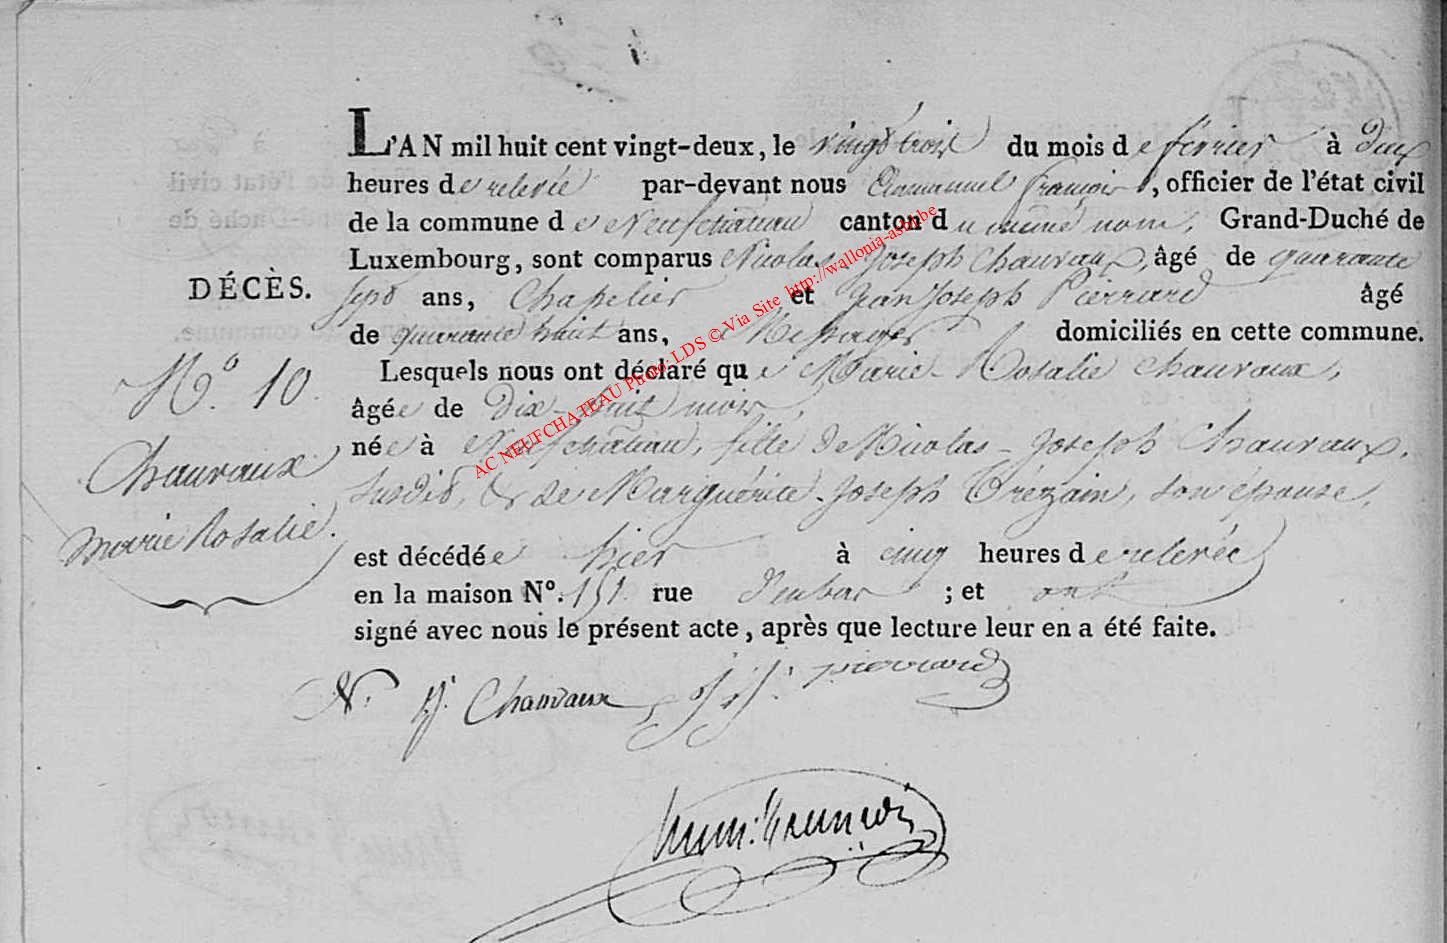 L'AN mil huit cent vingt-deux, le vingt trois du mois de février à deux
heures de relevée par-devant nous Emmanuel François, officier de l'état civil
de la commune de Neufchateau canton du même nom, Grand-Duché de
Luxembourg, sont comparus Nicolas-Joseph Chauvaux, âgé de quarante
DÉCÈS.
sept ans, Chapelier et Jean Joseph Pierrard âgé
de quarante huit ans, Messager domiciliés en cette commune.
Lesquels nous ont déclaré que Marie-Rosalie Chauvaux,
N.º 10.
âgée de Dix-huit mois,
née à Neufchateau, fille de Nicolas-Joseph Chauvaux,
Chauvaux
susdit, & de Marguérite-Joseph Trézain, son épouse,
Marie Rosalie.
est décédée hier à cinq heures de relevée
en la maison Nº. 151 rue d'enbas ; et ont
signé avec nous le présent acte, après que lecture leur en a été faite.
N. J. Chauvaux J. J. pierrard
AC NEUFCHATEAU Photo: LDS © Via Site http://wallonia-asbl.be